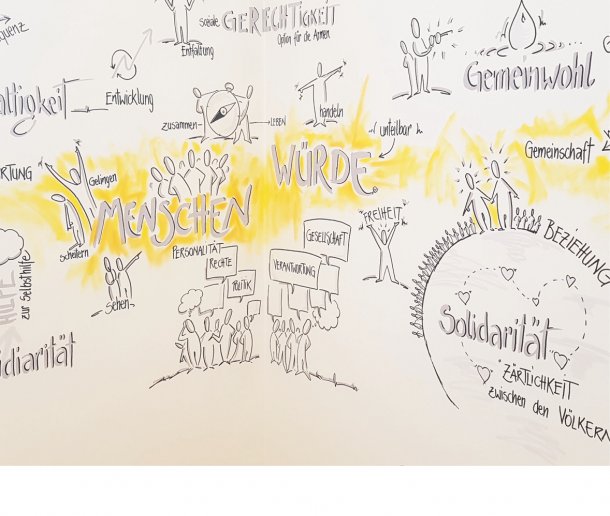 soziale GERECHTIGKEIT
Option für die Armen
Entfaltung
Entwicklung
zusammen
LEBEN
handeln
Gemeinwohl
unteilbar
Gemeinschaft
Gelingen
scheitern
MENSCHEN
WÜRDE
FREIHEIT
sehen
PERSONALITÄT
RECHTE
POLITIK
GESELLSCHAFT
VERANTWORTUNG
BEZIEHUNG
HILFE
zur Selbsthilfe
Solidarität
ZÄRTLICHKEIT
zwischen den VÖLKERN